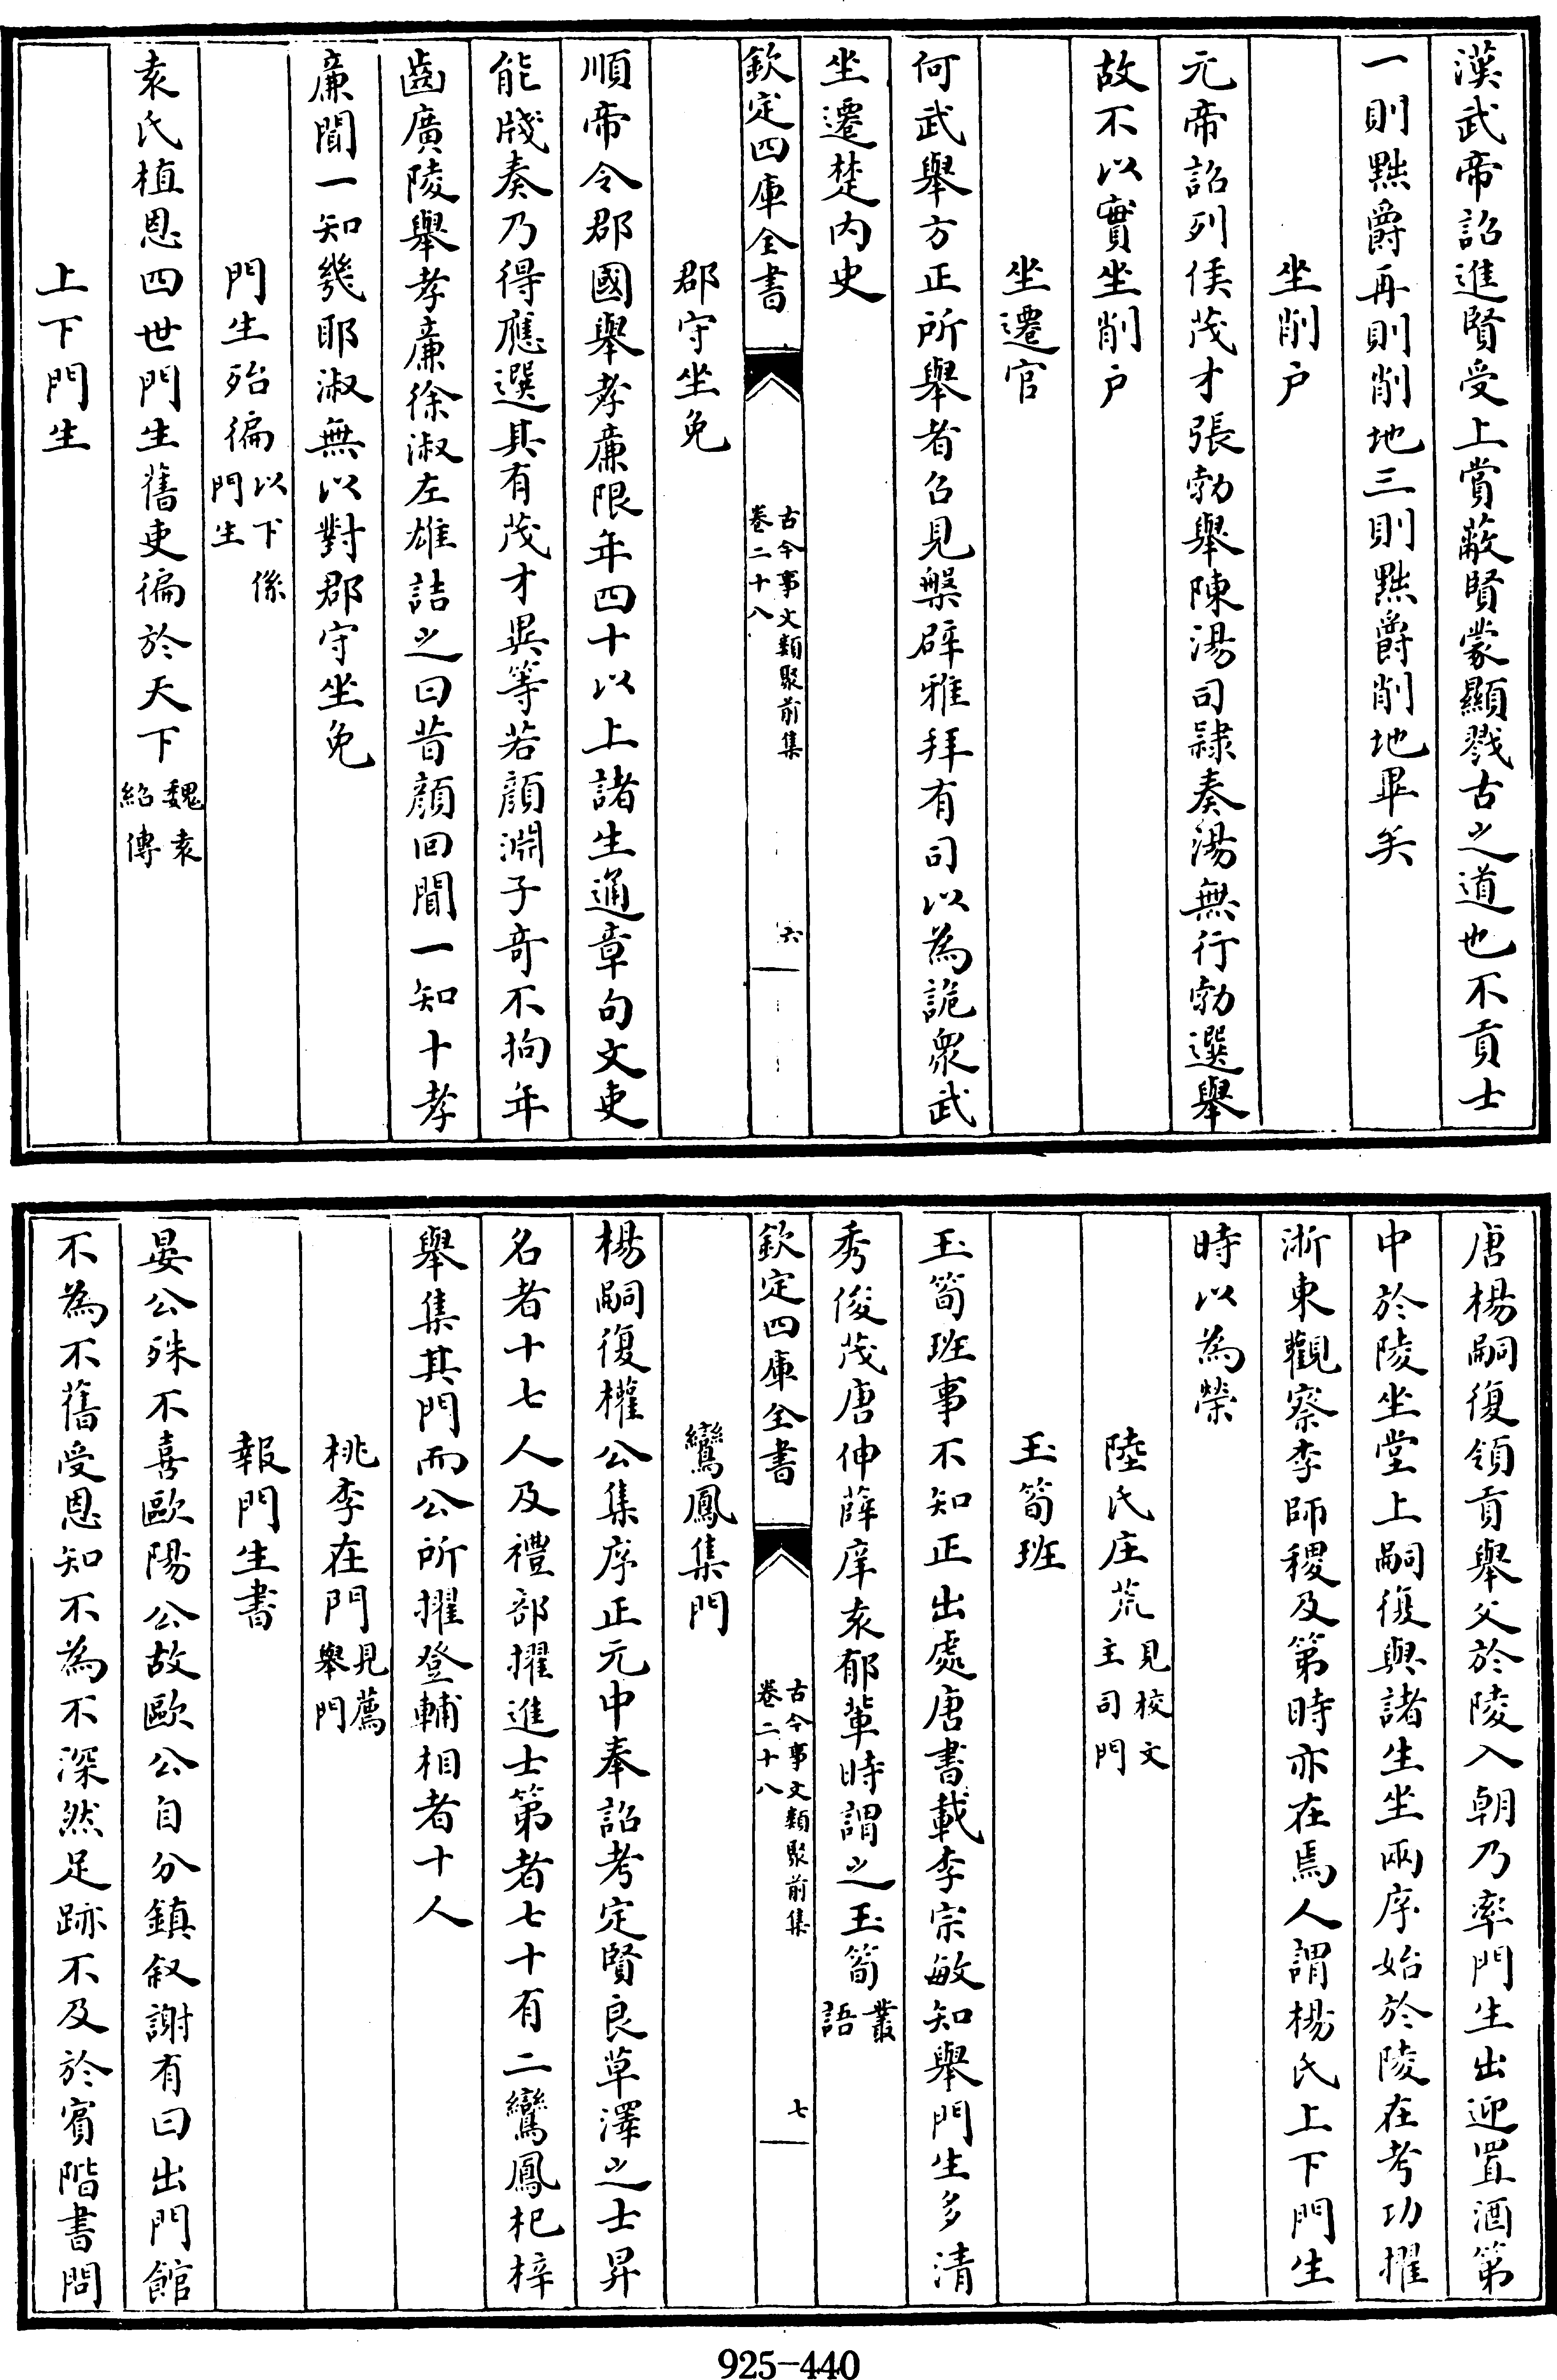 漢武帝詔進賢受上賞蔽賢蒙顯戮古之道也不貢士
一則黜爵再則削地三則黜爵削地畢矣
坐削户
元帝詔列侯茂才張勃舉陳湯司隷奏湯無行勃選舉
故不以實坐削户
坐遷官
何武舉方正所舉者召見槃辟雅拜有司以為詭衆武
坐遷楚内史
欽定四庫全書
古今事文類聚前集
卷二十八
六
郡守坐免
順帝令郡國舉孝亷限年四十以上諸生通章句文吏
能牋奏乃得應選其有茂才異等若顔淵子奇不拘年
齒廣陵舉孝亷徐淑左雄詰之曰昔顔回聞一知十孝
亷聞一知幾耶淑無以對郡守坐免
門生殆徧以下係
門生
袁氏植恩四世門生舊吏徧於天下魏袁
紹傳
上下門生
唐楊嗣復領貢舉父於陵入朝乃率門生出迎置酒第
中於陵坐堂上嗣復與諸生坐兩序始於陵在考功擢
浙東觀察李師稷及第時亦在焉人謂楊氏上下門生
時以為榮
陸氏庄荒見校文
主司門
玉筍班
玉筍班事不知正出處唐書載李宗敏知舉門生多清
秀俊茂唐伸薛庠袁郁輩時謂之玉筍叢
語
欽定四庫全書
古今事文類聚前集
卷二十八
七
鸞鳳集門
楊嗣復權公集序正元中奉詔考定賢良草澤之士昇
名者十七人及禮部擢進士第者七十有二鸞鳳杞梓
舉集其門而公所擢登輔相者十人
桃李在門見薦
舉門
報門生書
晏公殊不喜歐陽公故歐公自分鎮叙謝有曰出門館
不為不舊受恩知不為不深然足跡不及於賓階書問
925-440